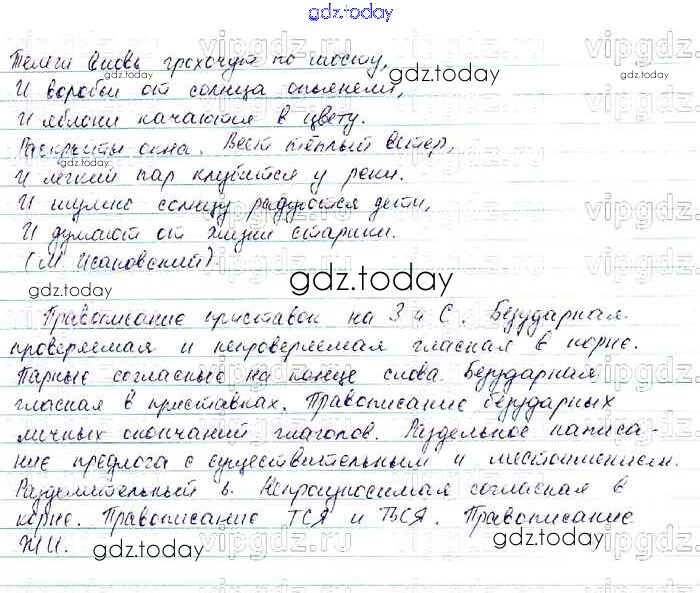 gdz.today
Телеги вновь грохочут по мосту,
gdz.today
И воробьи от солнца опьянели,
И яблони качаются в цвету.
Раскрыты окна. Веет тёплый ветер,
gdz.today
И лёгкий пар клубится у реки.
И шумно солнцу радуются дети,
И думают от жизни старики.
(М. Исаковский).
gdz.today
gdz.today
Правописание приставок на З и С. Безударная
проверяемая и непроверяемая гласная в корне.
Парные согласные на конце слова. Безударная
гласная в приставках. Правописание безударных
личных окончаний глаголов. Раздельное написа-
ние предлога с существительным и местоимением.
Разделительный ь. Непроизносимая согласная в
корне. Правописание ТСЯ и ТЬСЯ. Правописание
ЖИ.
gdz.today
gdz.today
vipgdz.com